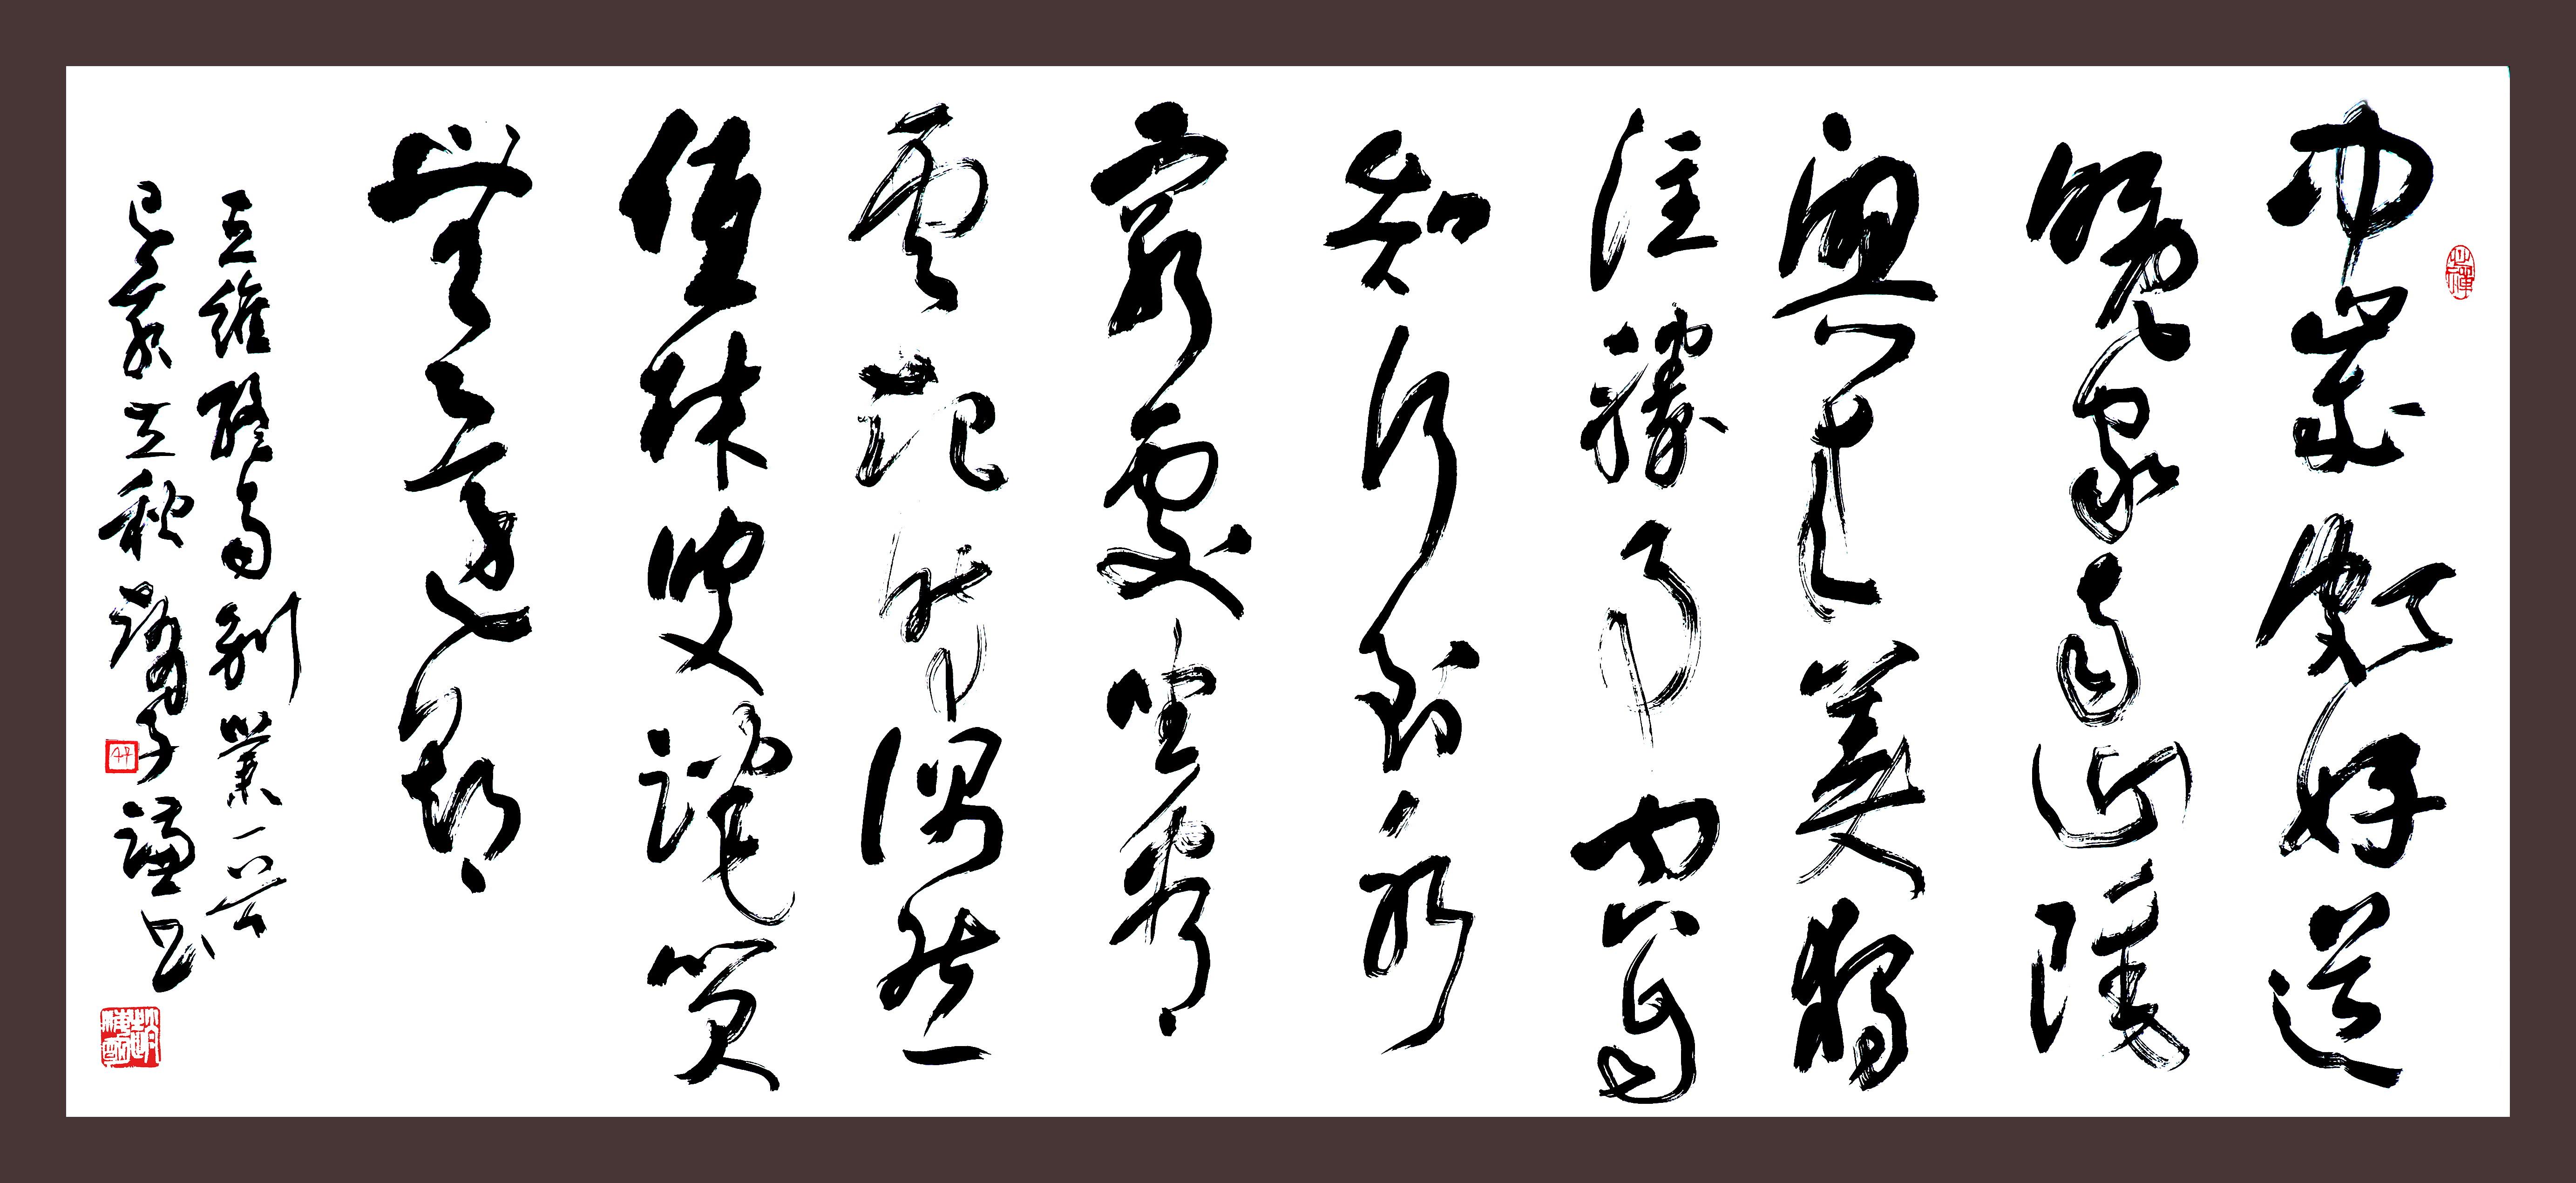 中歲頗好道
晚家南山陲
興來美獨
往勝事空自
知行到水
窮處坐看
雲起時偶然
值林叟談笑
無還期
王維終南別業一首
己亥立秋 子謙書